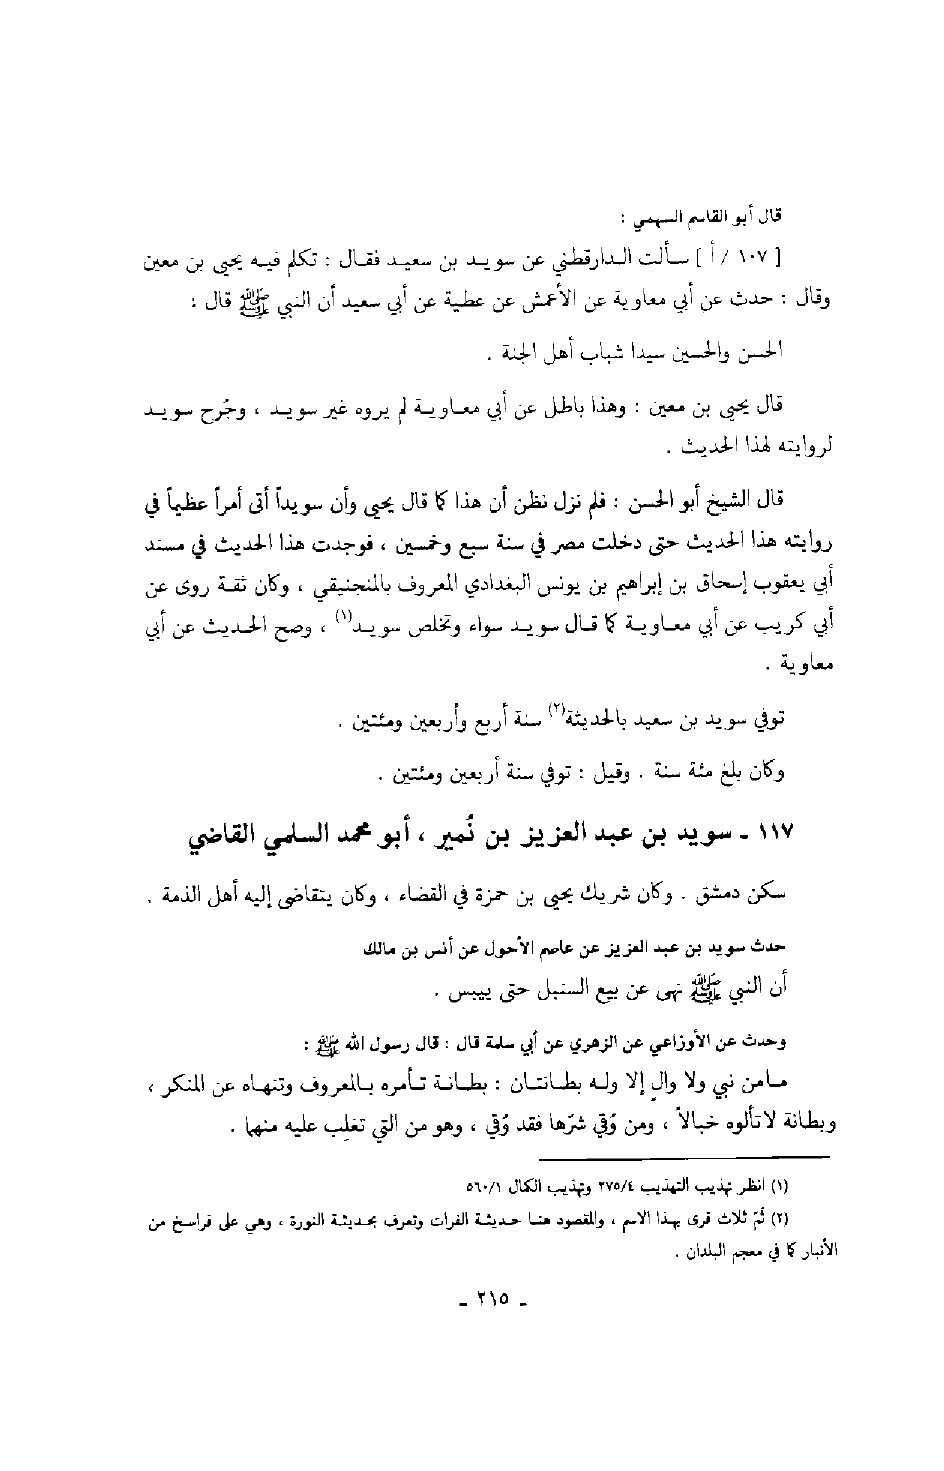 قال أبو القاسم السهمي :
[ ١٠٧ / أ ] سألت الدارقطني عن سويد بن سعيد فقال : تكلم فيه يحيى بن معين
وقال : حدث عن أبي معاوية عن الأعمش عن عطية عن أبي سعيد أن النبي ﷺ قال :
الحسن والحسين سيدا شباب أهل الجنة .
قال يحيى بن معين : وهذا باطل عن أبي معاوية لم يروه غير سويد ، وجُرح سويد
لروايته لهذا الحديث .
قال الشيخ أبو الحسن : فلم نزل نظن أن هذا كما قال يحيى وأن سويداً أتى أمراً عظيماً في
روايته هذا الحديث حتى دخلت مصر في سنة سبع وخمسين ، فوجدت هذا الحديث في مسند
أبي يعقوب إسحاق بن إبراهيم بن يونس البغدادي المعروف بالمنجنيقي ، وكان ثقة روى عن
أبي كريب عن أبي معاوية كما قال سويد سواء وتخلص سويد(١) ، وصح الحديث عن أبي
معاوية .
توفي سويد بن سعيد بالحديثة(٢) سنة أربع وأربعين ومئتين .
وكان بلغ مئة سنة . وقيل : توفي سنة أربعين ومئتين .
١١٧ - سويد بن عبد العزيز بن نُمير ، أبو محمد السلمي القاضي
سكن دمشق . وكان شريك يحيى بن حمزة في القضاء ، وكان يتقاضى إليه أهل الذمة .
حدث سويد بن عبد العزيز عن عاصم الأحول عن أنس بن مالك
أن النبي ﷺ نهى عن بيع السنبل حتى ييبس .
وحدث عن الأوزاعي عن الزهري عن أبي سلمة قال : قال رسول الله ﷺ :
مامن نبي ولا والٍ إلا وله بطانتان : بطانة تأمره بالمعروف وتنهاه عن المنكر ،
وبطانة لاتألوه خبالاً ، ومن وُقي شرّها فقد وُقي ، وهو من التي تغلب عليه منهما .
(١) انظر تهذيب التهذيب ٢٧٥/٤ وتهذيب الكمال ٥٦٠/١
(٢) ثمّ ثلاث قرى بهذا الاسم ، والمقصود هنا حديثة الفرات وتعرف بحديثة النورة ، وهي على فراسخ من
الأنبار كما في معجم البلدان .
- ٢١٥ -